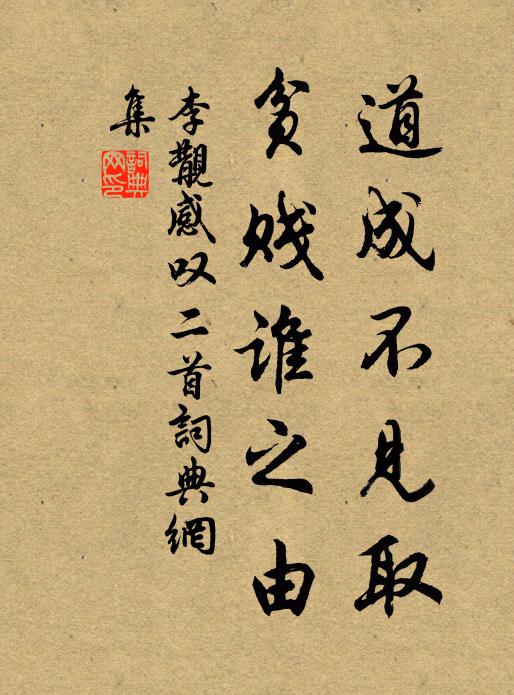 道成不見取
貧賤誰之由
李觀感叹二首詞典網
集
詞典
网印